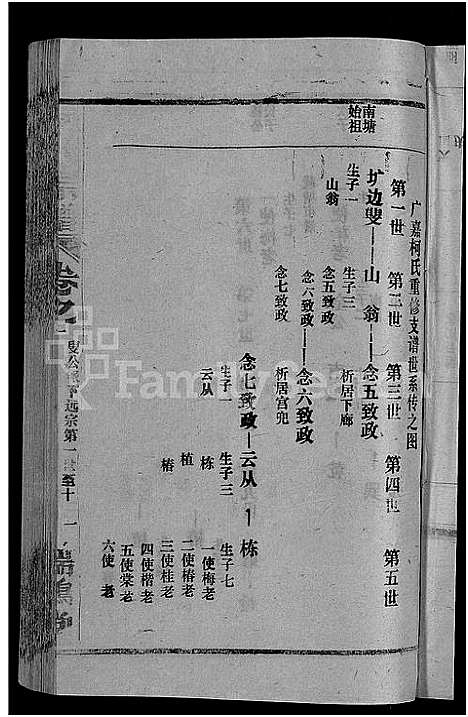 广嘉柯氏重修支谱世系传之图
第一世 第二世 第三世 第四世 第五世
圹边叟——山翁——念五致政
南塘始祖
生子一
山翁
生子三
念五致政
念六致政——念六致政
念七致政
析居下廊
析居宫兜
念七致政—云从—栋
生子一
云从
生子三
栋
植
椿
生子七
一使梅老
二使椿老
三使桂老
四使楷老
五使棠老
六使老
卷九
远宗第一世至十
一
FamilySearch